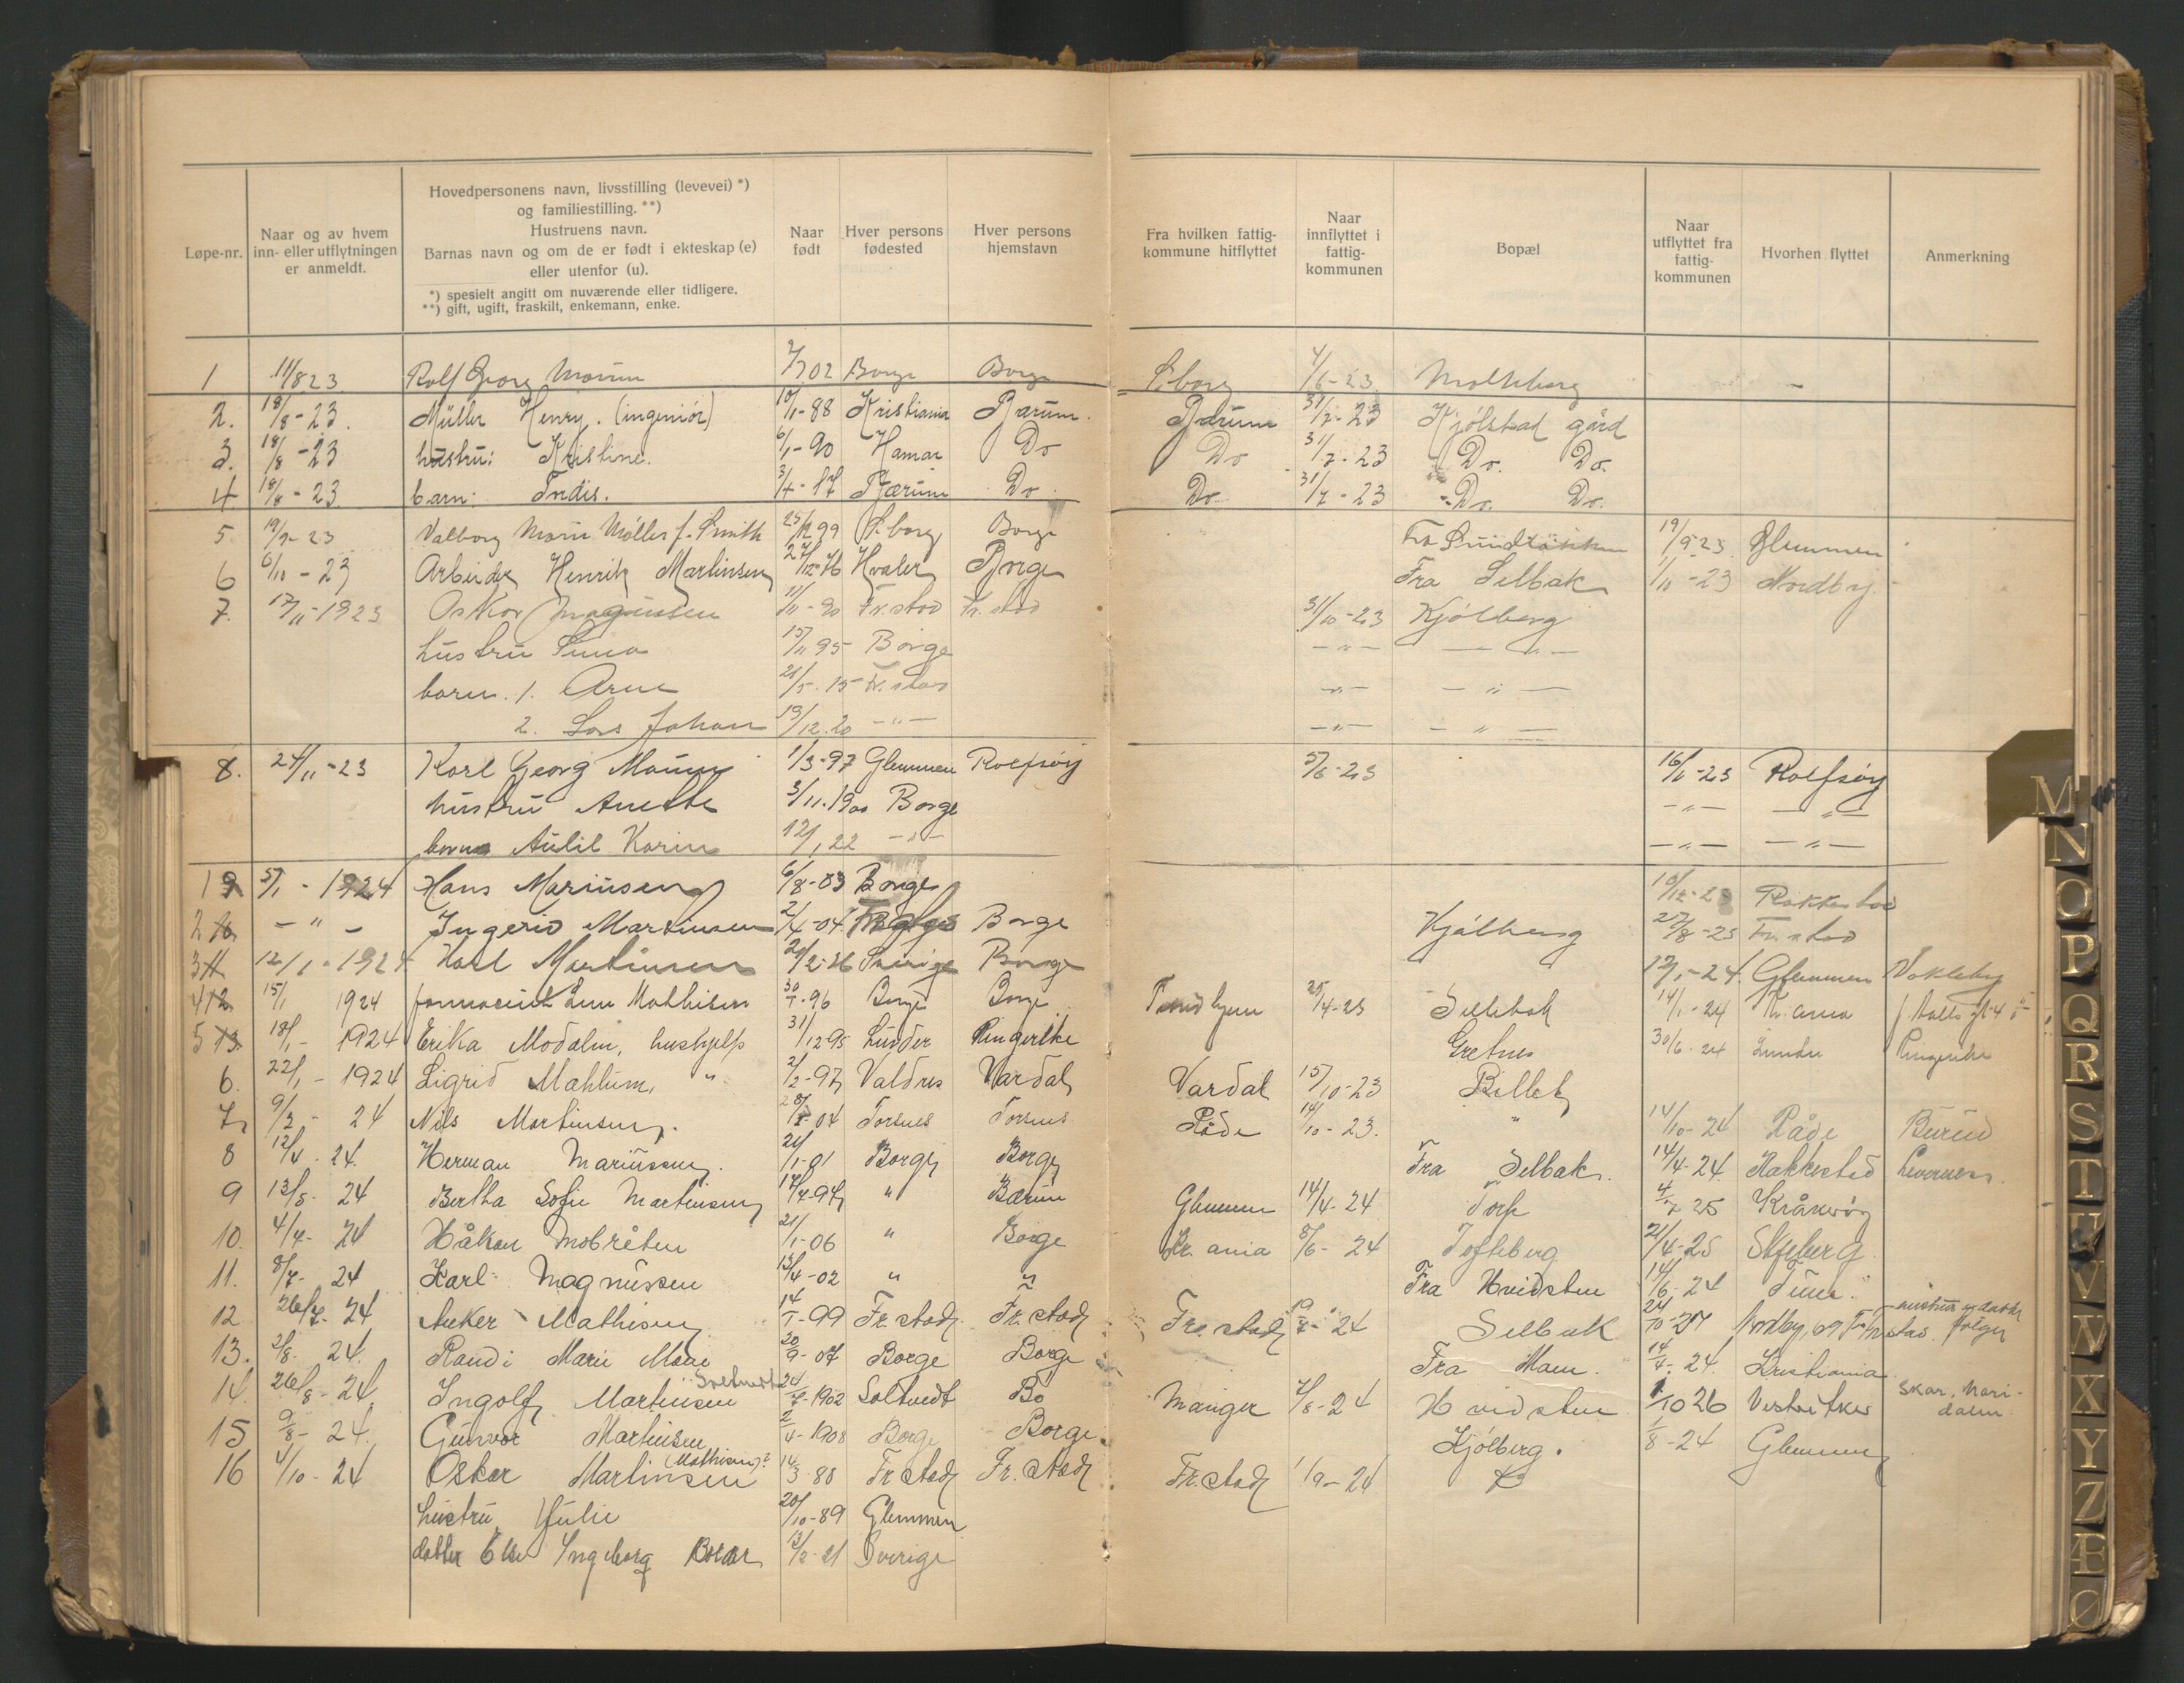 Løpe-nr.
Naar og av hvem
inn- eller utflytningen
er anmeldt.
Hovedpersonens navn, livsstilling (levevei) *)
og familiestilling. **)
Hustruens navn.
Barnas navn og om de er født i ekteskap (e)
eller utenfor (u).
*) spesielt angitt om nuværende eller tidligere.
**) gift, ugift, fraskilt, enkemann, enke.
Naar
født
Hver persons
fødested
Hver persons
hjemstavn
Fra hvilken fattig-
kommune hitflyttet
Naar
innflyttet i
fattig-
kommunen
Bopæl
Naar
utflyttet fra
fattig-
kommunen
Hvorhen flyttet
Anmerkning
1 11/8 23 Rolf Georg 02 Borge Borge S.borg 4/6-23
2. 18/8-23. Müller Henry. (ingeniør) 10/1-88 Kristiania Bærum. Bærum 31/7-23 Kjølstad gård
3. 18/8-23 hustru: Kristine. 6/1-90 Hamar Do Do 31/7-23 Do. Do.
4 18/8-23. barn: Tordis. 3/4-17 Bærum Do. Do. 31/7-23 Do. Do.
5 19/9-23 Valborg Marie Møller f. Smith 99 S.borg Borge Fra 19/9 23. Glemmen
6 6/10-23 Arbeider Henrik Martinsen Hvaler Borge Fra Selbak 1/10-23 Nordby
7. 17/11-1923 Oskar Magnussen 11/11-90 Fr.stad Fr.stad 31/10-23 Kjølberg
hustru 15/11 95 Borge -"- -"-
barn. 1. Arne 21/5.15 Fr.stad -"- -"-
2. Lars Johan 19/12.20 -"- -"- -"-
8. 24/11-23 Karl Georg 1/3-97 Glemmen Rolfsøy 5/6-23 16/11-23 Rolfsøy
hustru Anette 3/11.1900 Borge -"- -"-
Karin 12/1 22 -"- -"- -"-
1 9 5/1-1924 Hans Mariusen 6/8-03 Borge 10/12-23 Rakkestad
2 10 -"- Ingerid Martinsen 2/4-04. Borge Kjølberg 27/8-23 Fr.stad
3 11 12/1-1924 Karl Martinsen Sverige Borge 12/1-24. Glemmen
4 12 15/1 1924 Mathisen 30/1-96 Borge Borge 25/4-23 Sellebak 14/1-24 Kr.ania
5 13. 18/1-1924 Erika Modalin, hushjelp 31/12 95 Lunder Ringerike Gretnes 30/6-24 Lunder Ringerike
6. 22/1-1924 Sigrid Mæhlum, " 2/2-97 Valdres Vardal Vardal 15/10-23
7 9/2-24 Nils Martinsen. 04 Torsnes Torsnes Råde 14/10-23. " 14/10-24 Råde
8 12/4.24. Herman Mariussen. 21/1-01 Borge Borge Fra Selbak. 14/4-24.
9 13/5-24 Bertha Sofie Martinsen " Bærum Glemmen 14/4-24 Torp 25 Kråkerøy
10. 4/4-24 Håkon Mobråten 21/1-06 " Borge Kr.ania 8/6-24 Tofteberg 21/4-25 Skjeberg
11. 8/7-24 Karl Magnussen 13/4-02 " " Fra Hvidsten 14/6-24 Tune.
12 26/7-24 Anker Mathisen 14/1-99 Fr.stad Fr.stad Fr.stad 24 Selbak
følger
13. 2/8-24. Randi Marie Moe 20/9-07 Borge Borge Fra 14/4-24. Kristiania
14. 26/8-24 Ingolf Martinsen 1902 Bø Manger 7/8-24 Hvidsten 1/10 26 Vestre Aker Skar, Mari-
dalen
15 9/8-24. Gunvor Martinsen 2/4-1908 Borge Borge. Kjølberg. 1/8-24 Glemmen
(Mathisen)?
16 4/10-24 Oskar Martinsen 14/3-88 Fr.stad Fr.stad Fr.stad 1/9-24
hustru Julie 20/10-89 Glemmen
datter Else Ingeborg 21 Sverige
M
N
O
P
Q
R
S
T
U
V
W
X
Y
Z
Æ
Ø